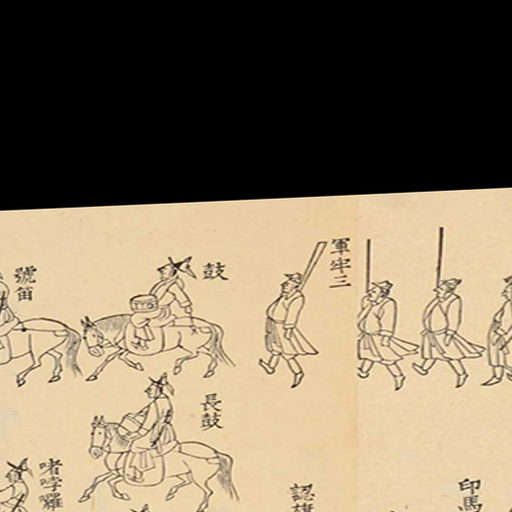 軍牢三
鼓
號笛
長鼓
印馬
認旗
啫哱囉